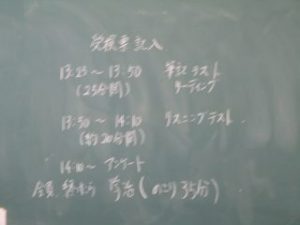 受検票記入
13:25～13:50 筆記テスト
(25分間) リーディング
13:50～14:10 リスニングテスト
(約20分間)
14:10～アンケート
全員 終わったら 自習(のこり35分)